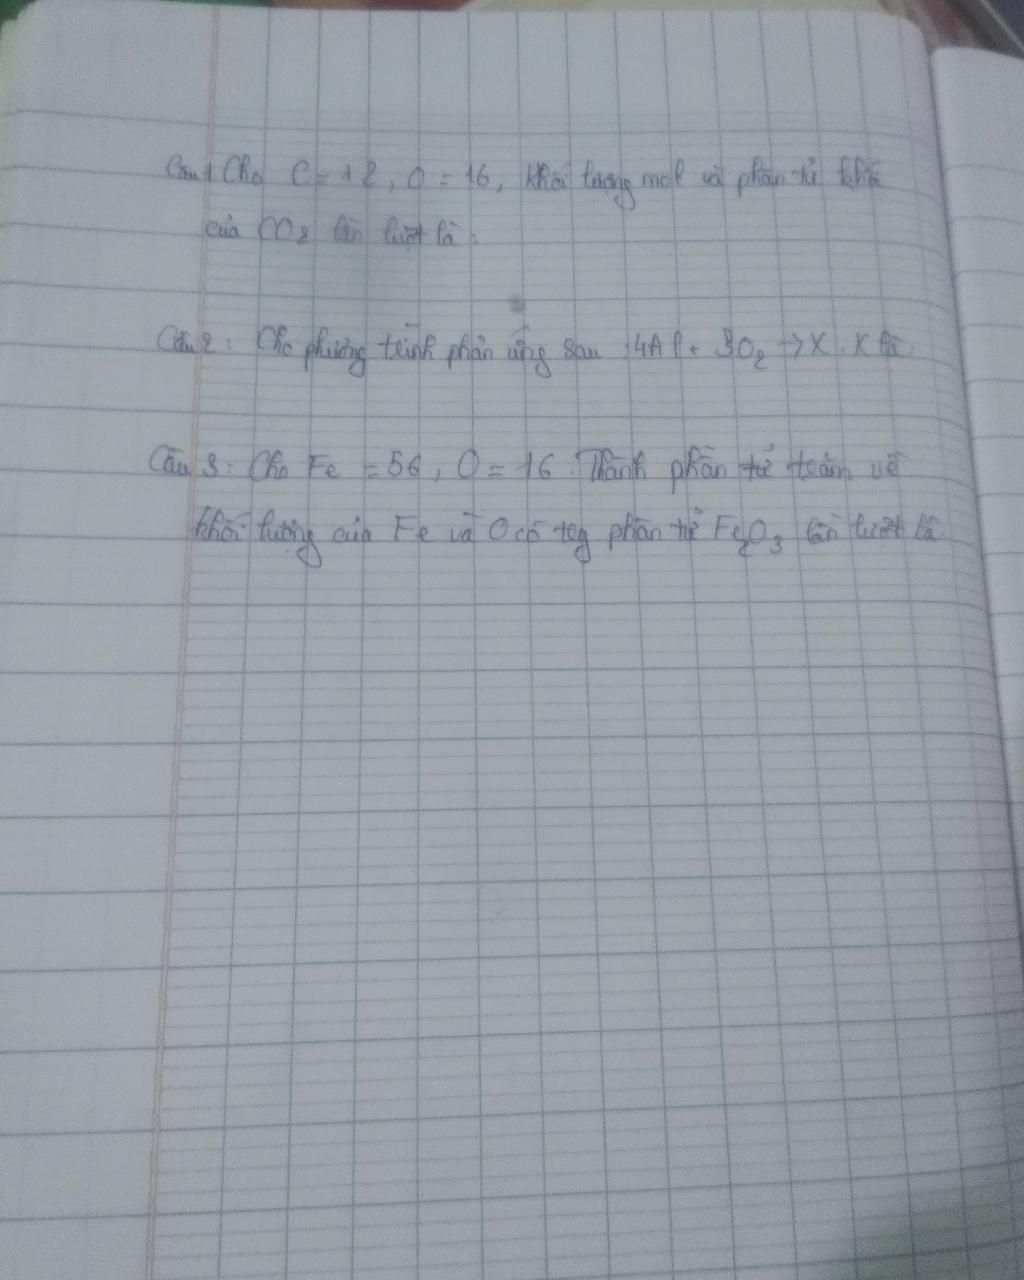 Câu 1 Cho C = 12, O = 16, khối lượng mol và phân tử khối
của CO2 lần lượt là:
Câu 2: Cho phương trình phản ứng sau 4Al + 3O2 → X. X là
Câu 3: Cho Fe = 56, O = 16. Thành phần từ trăm về
khối lượng của Fe và O có tg phân tử Fe2O3 lần lượt là